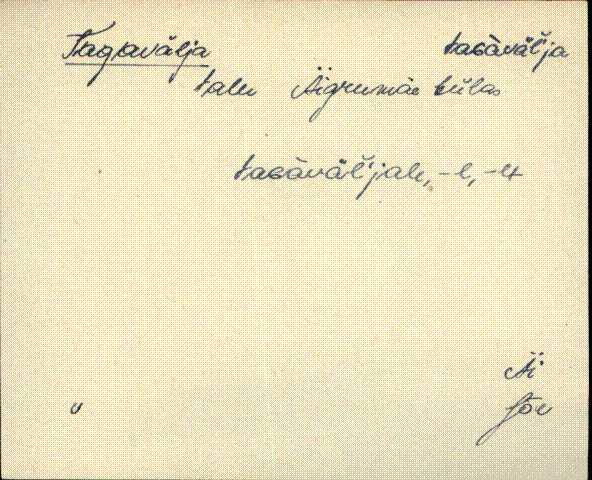 Tagavälja taGàväĺja
talu Äigrumäe külas
taGàväĺjale, -l, -lt
Äi
Jõe